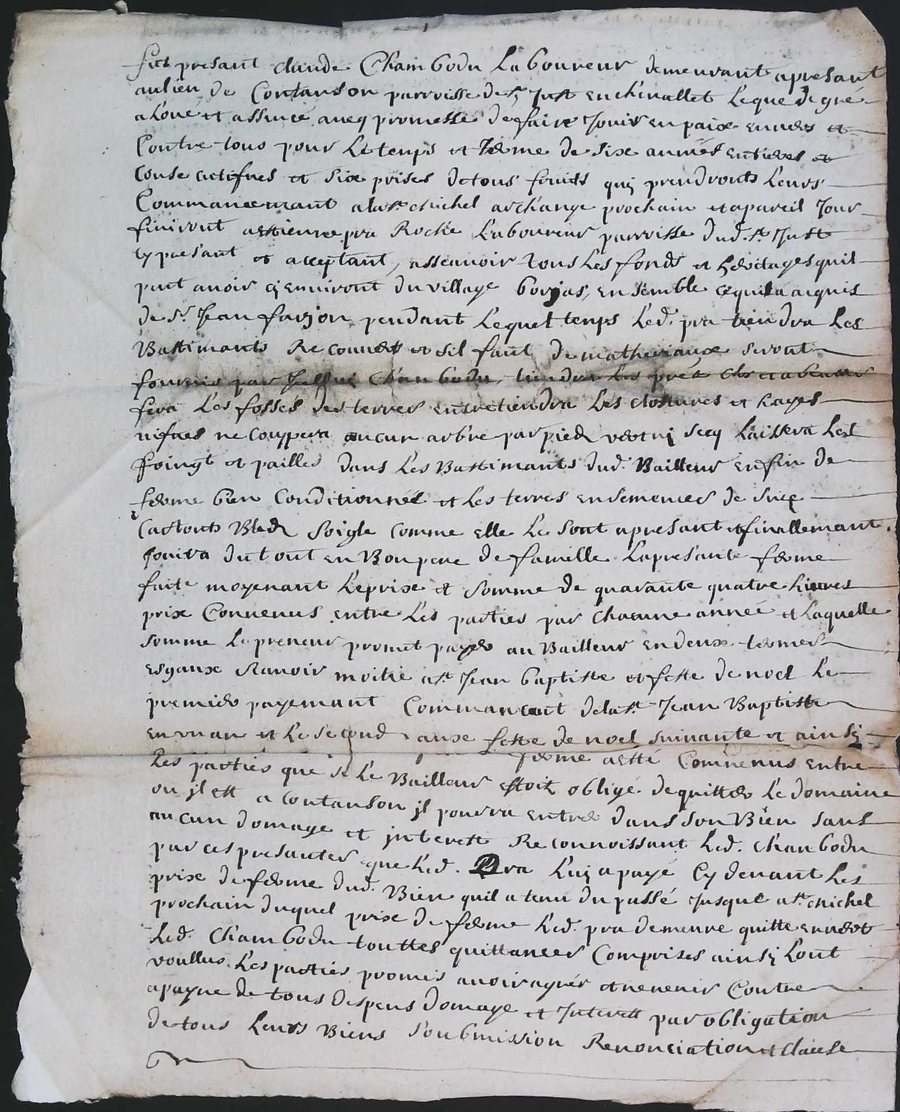 fut presant claude Chambodu laboureur demeurant apresant
aulieu de Contanson parroisse de st Just en chivallet lequel de gré
a loué et assencé aveq promesse de faire Jouir en paix envers et
Contre tous pour le temps et ferme de six années entieres et
conse cactifves et six prises de tous fruits qui prendront leurs
Commancemant a la st michel archange prochain et a pareil Jour
finiront a estienne pra Roche laboureur parroisse dud. st Just
cy presant et acceptant, assavoir tous les fonds et heritages quil
peut avoir es environt du village borjas, ensemble ce quil a aquis
de sr. Jean farjon pendant lequel temps led. pra tiendra les
Bastimants Recouvert et sil faut de matheriaux seront
fournis par Chambodu, tiendra les prés
fera les fosses des terres entretiendra les clostures et hayes
vifves ne couppera aucun arbre par pied vert ni secq laissera les
foingt et pailles dans les Bastimants dud. Bailleur en fin de
ferme bien Conditionné et les terres ensemences de
Cartons Bled Soigle comme elle le sont apresant et finallemant
Jouira du tout en Bon pere de famille la presante ferme
faite moyenant le prise et somme de quarante quatre livres
prix Convenus entre les parties par chacune année et laquelle
somme le preneur promet payer au Bailleur en deux termes
esgaux scavoir moitié a st Jean baptiste et feste de noel le
premier payemant Commancant de la st Jean Baptiste
en un an et le second aux feste de noel suivante et ainsi
ferme a esté Convenus entre
les parties que si le Bailleur estoit obligé de quitter le domaine
ou il est a contanson il pourra entrer dans son Bien sans
aucun domage et interest Reconnoissant led. Chambodu
par ces presantes que led. Pra luy a payé cy devant les
prise de ferme dud. Bien quil a tenu du passé Jusque a st michel
prochain duquel prise de ferme led. pra demeure quitte envers
led. Chambodu touttes quittances Comprises ainsi lont
voullus les parties promis avoir agréé et ne venir Contre
a payne de tous despens domage et Interest par obligation
de tous leurs Biens Soubmission Renonciation et clause